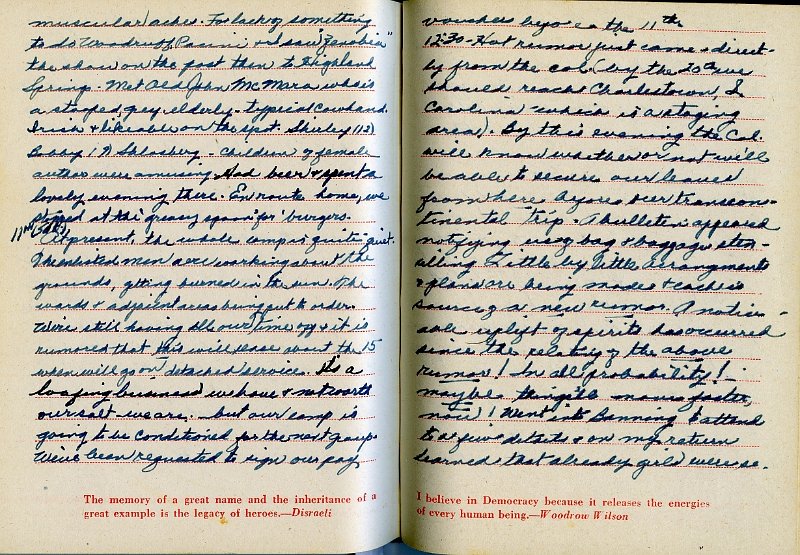 muscular aches. For lack of something
to do Woodruff, Pacini & I saw "Zenobia"
the show on the post then to Highland
Spring. Met Old John McMara who is
a stooped, grey elderly - typical cowhand.
Irish & likeable on the spot. Shirley (12)
Bobby (9) children of female
author were amusing. Had beer & spent a
lovely evening there. En route home, we
stopped at the greasy spoon for burgers.
11th (Sat)
At present, the whole camp is quite quiet.
The enlisted men are working about the
grounds, getting burned in the sun. The
wards & adjacent areas being put to order.
We're still having all our time off & it is
rumored that this will cease about the 15
when will go on detached service. It's a
loafing business we have & not worth
our salt we are. but our camp is
going to be conditioned for the next group.
We've been requested to sign our pay
vouchers before the 11th
12:30 - Hot rumor just came direct-
ly from the Col. (by the 20th we
should reach Charlestown, S.
Carolina which is a staging
area). By this evening the Col.
will know whether or not we'll
be able to secure our leaves
from here before our transcon-
tinental trip. A bulletin appeared
notifying us of bag & baggage
Little by little arrangements
& plans are being made & each is
source of a new rumor. A notice-
able uplift of spirits has occurred
since the relating of the above
rumor! In all probability!
maybe things'll move faster,
now! Went into Banning to attend
to a few details & on my return
learned that already girls were
The memory of a great name and the inheritance of a
great example is the legacy of heroes.—Disraeli
I believe in Democracy because it releases the energies
of every human being.—Woodrow Wilson